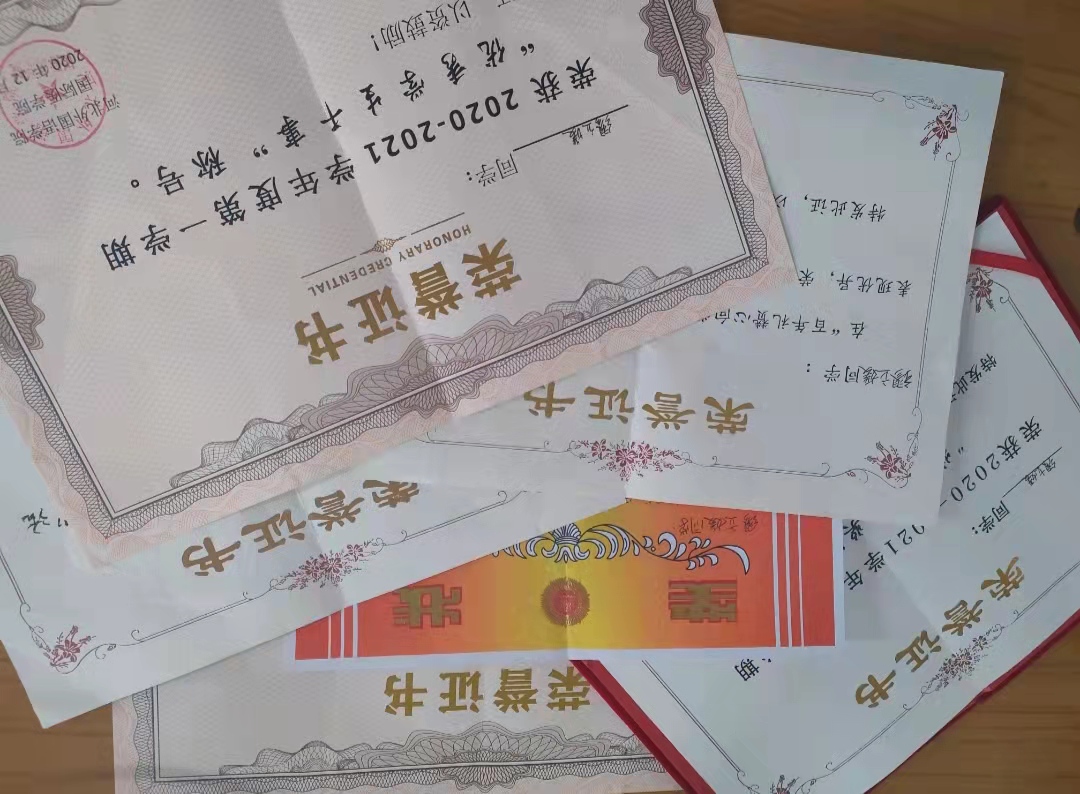 荣誉证书
HONORARY CREDENTIAL
同学:
荣获 2020-2021 学年度第一学期
“优秀学生干事”称号。
以资鼓励!
河北外国语学院
国际医学院
2020 年 12 月
荣誉证书
同学:
在“百年礼赞心向
表现优异,荣
特发此证,以
荣誉证书
同学:
荣获2020-
021学年
期
特发此
荣誉证书
奖状
同学:
荣誉证书